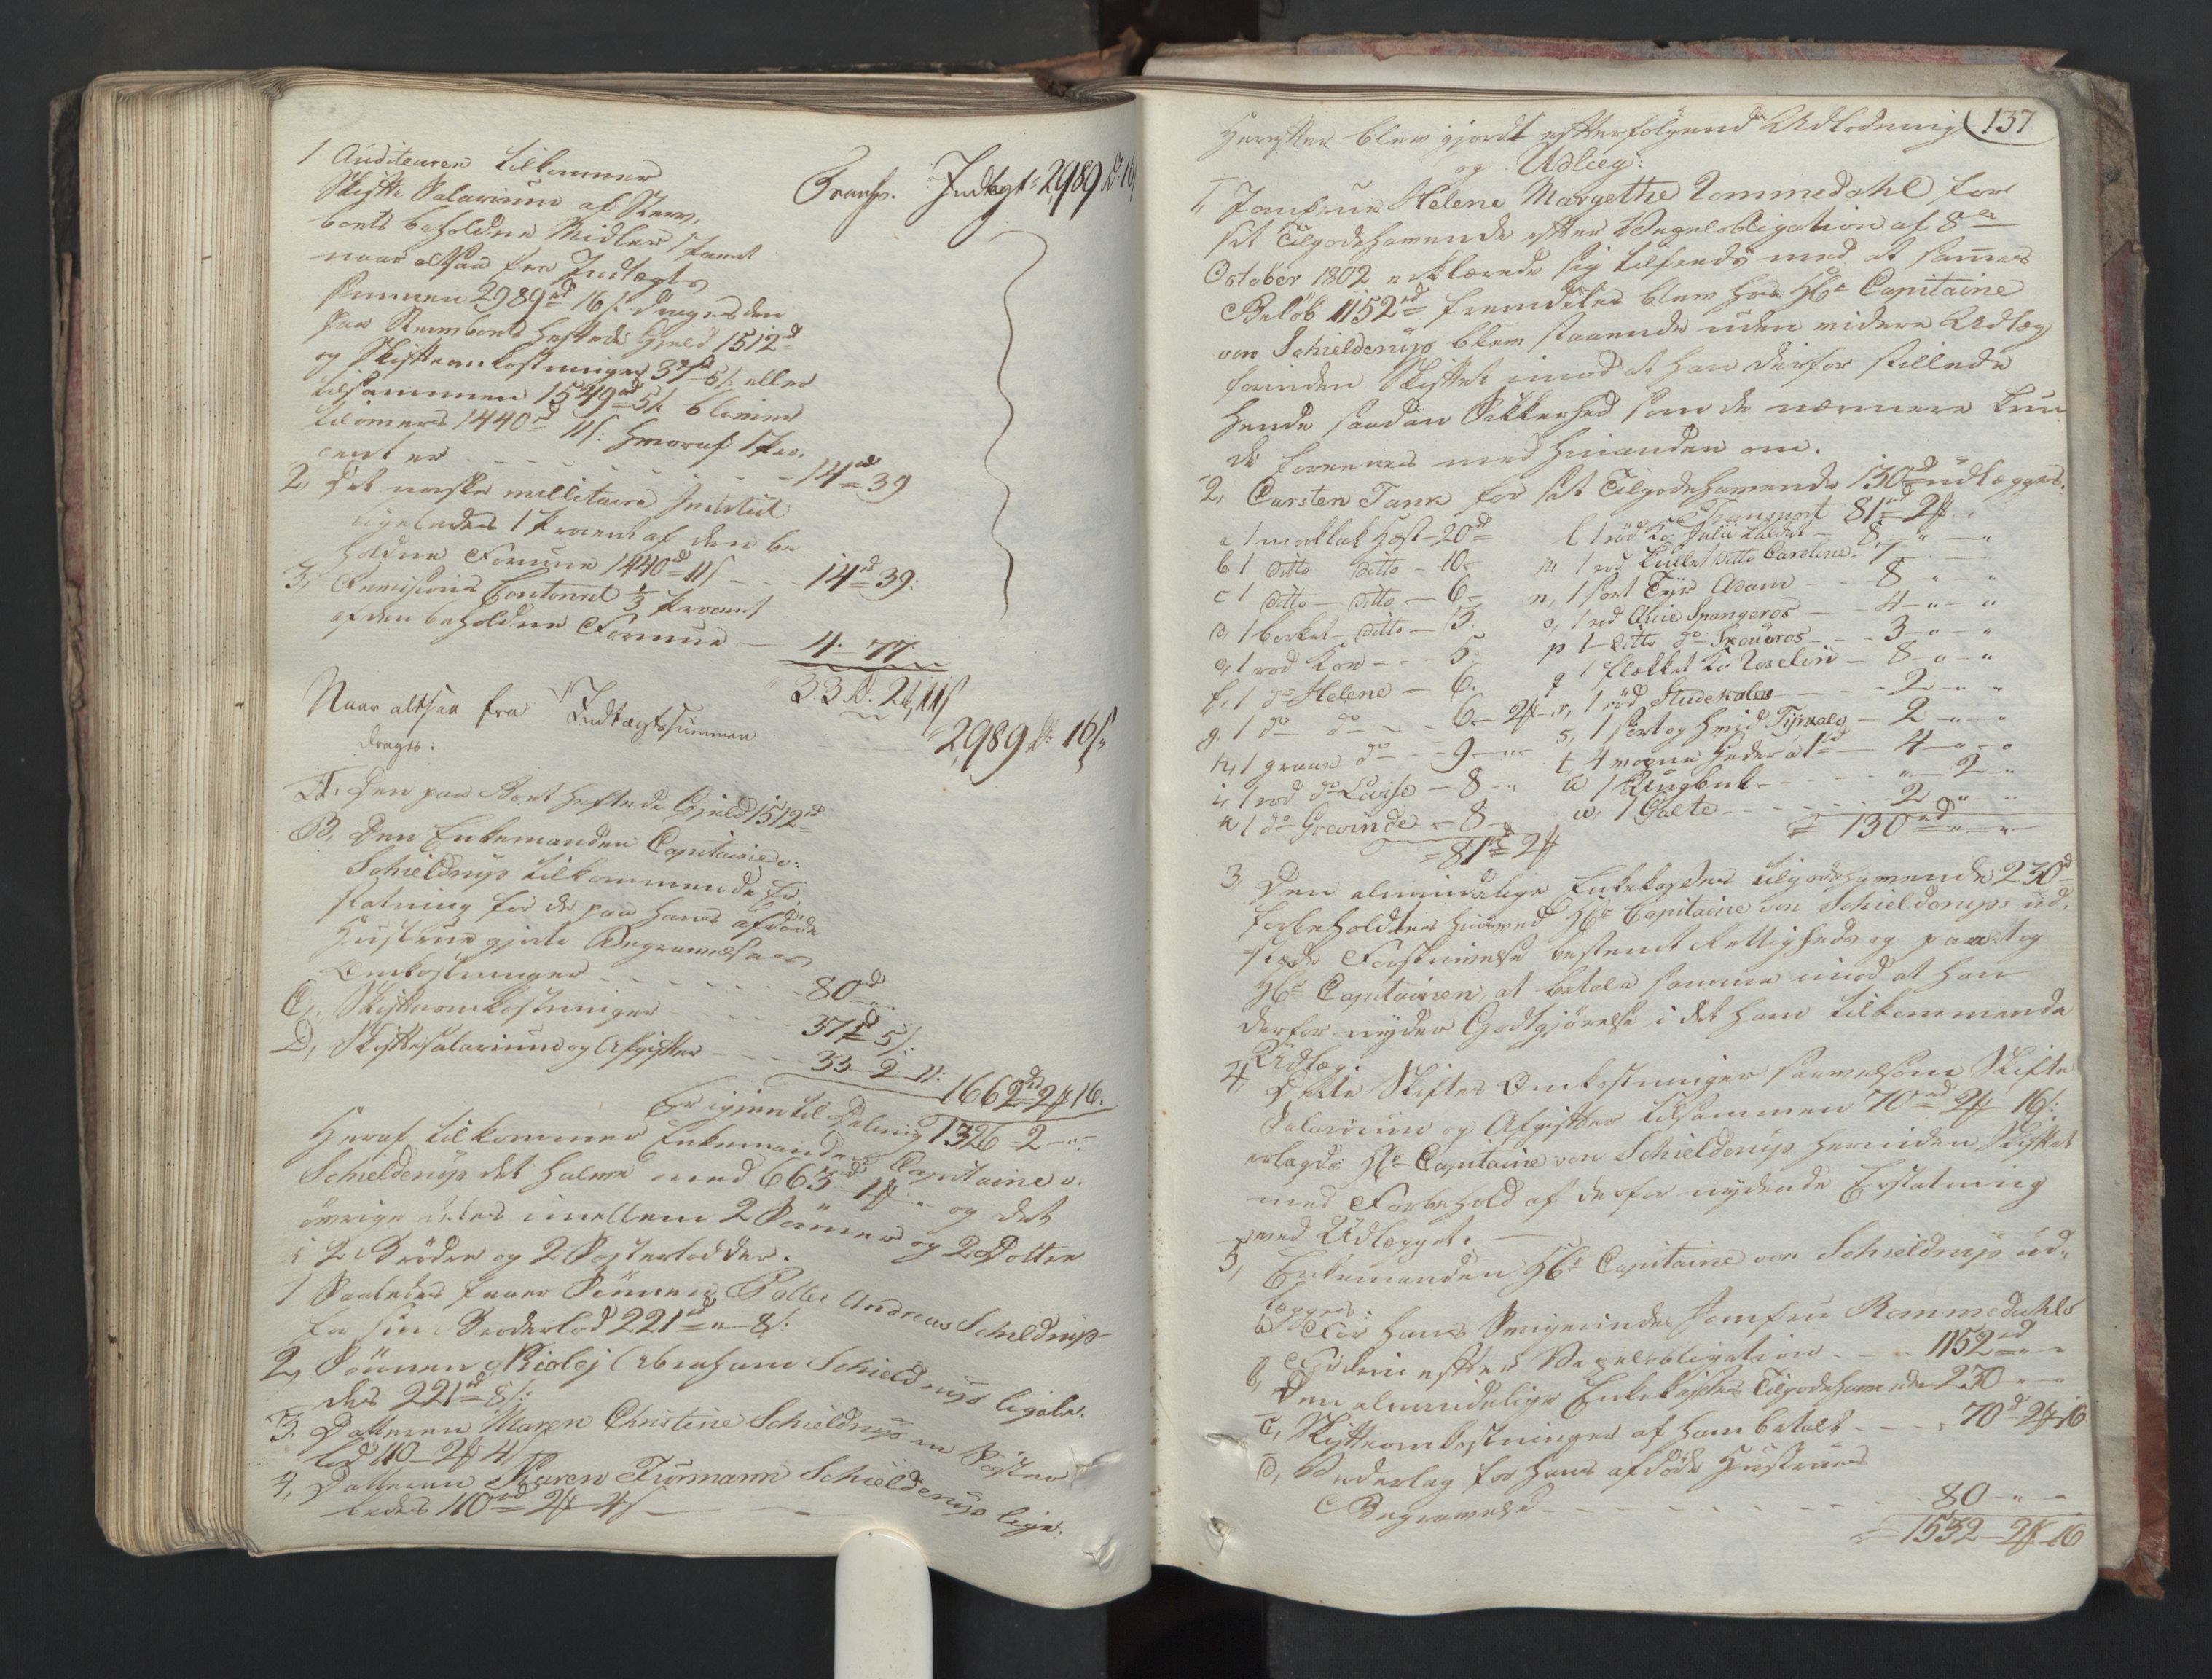 Transp. Indtægt 2989 rd: 16 s
1 Auditeuren tilkommer
Skifte Salarium af Sterv-
boets beholdne Midler 1 Procent
naar altsaa fra Indtægts
Summen 2989 rd 16 s drages den
paa Stervboets heftede Gjeld 1512 rd
og Skifteomkostninger 37 rd 5 s eller
tilsammen 1549 rd 5 s bliver
tilovers 1440 rd 11 s: hvoraf 1 Pro-
cent er - - - - 14 rd = 39
2, Det norske millitaire Institut
ligeledes 1 Procent af den be
holdne Formue 1440 rd 11 s - - - 14 rd = 39:
3, Revisions Contoiret 1/3 Procent
af den beholdne Formue - 4. 77.
33 rd. 2 11 s
Naar altsaa fra Indtægtssummen
2989 rd: 16 s
drages:
A. Den paa Boet heftede Gjeld 1512 rd
B. Den Enkemanden Capitaine v:
Schieldrup tilkommende Er-
statning for de paa hans afdøde
Hustrue gjorte Begravelses
Omkostninger - - - - - 80 rd
C, Skifteomkostninger - - 37 rd 5 s:
D, Skiftesalarium og Afgifter - - - 33 - 2 - 11:
1662 rd 2 16.
Er igjen til Deling 1326 - 2 - "
Heraf tilkommer Enkemanden Capitaine v.
Schielderup det halve med 663 rd 1 " og det
øvrige deles imellem 2 Sønner og 2 Døttre
i 2 Brødre og 2 Søsterlodder.
1 Saaledes faaer Sønnen Peller Andreas Schieldrup
for sin Broderlod 221 rd " 8 s:
2, Sønnen Nicolej Abraham Schieldrup ligele-
des 221 rd 8 s:
3. Datteren Maren Christine Schieldrup en Søster
lod 110 - 2 4 s
4, Datteren Karen Turmann Schielderup lige-
ledes 110 rd 2 4 s
137
Herefter blev gjordt efterfølgende Udlodning
og Udlæg:
1, Jomfrue Helene Margethe Rommedahl for
sit Tilgodehavende efter Vexelobligation af 8de
October 1802 erklærede sig tilfreds med at sammes
Beløb 1152 rd fremdeles blev hos Hr Capitaine
von Schielderup blev staaende uden videre Udlæg
forinden Skiftet imod at han derfor stillede
Hende saadan Sikkerhed som de nærmere kun-
de forenes med hinanden om.
2, Carsten Tank for sit Tilgodehavende 130 rd udlægges:
a 1 morklak Hæst - 20 rd
b 1 ditto ditto - 10 -
c 1 ditto - ditto - 6 -
d, 1 borket - ditto - 3.
e, 1 rød Koe - - - 5.
f, 1 do Helene - 6.
g. 1 do do - - 6 - 2
h, 1 graae do - - 9 - "
i, 1 rød do Lovise - 8 - "
k 1 do Grevinde - 8 -
= 81 rd 2
Transport 81 rd = 2
l 1 rød Ko Julii kaldet - 8 - " - "
m 1 rød kullet ditto Caroline - 7 - " - "
n, 1 sort Tyr Adam - - - 8 - " - "
o, 1 rød Qvie Spangeros - - 4 - " - "
p 1 ditto do - - 3 - " - "
q 1 flækket Ko Roselin - 8 - " - "
r, 1 rød Studekalv - - - 2 - " - "
s, 1 sort og hvid Tyrkalv - 2 - " - "
t, 4 voxne Geder á 1 rd - 4 - " - "
u 1 Ungbuk - - - " - 2 - "
w. 1 Galte - - - 2 - " - "
= 130 rd " - "
3, Den almindelige Enkekasses tilgodehavende 230 rd
forbeholdtes hiin ved Hr Capitaine von Schielderups ud-
stæde Forskrivelse bestemt Rettighed og paatog
Hr Capitainen, at betale samme imod at han
derfor nyder Godtgjørelse i det ham tilkommende
Udlæg.
4, Dette Skiftes Omkostninger saavelsom Skifte
Salarium og Afgifter tilsammen 70 rd 2 16 s:
erlagde Hr Capitaine von Schielderup herinden Skiftet
med Forbehold af derfor nydende Erstatning
ved Udlægget.
5, Enkemanden Hr Capitaine von Schieldrup ud-
lægges:
a, For hans Svigerinde Jomfru Rommedahls
Fordring efter Vexelobligation - - - 1152 rd " "
b, Den almindelige Enkekasses Tilgodehavende 230 - " - "
c, Skifteomkostninger af ham betalt - - - 70 rd 2 16
d, Vederlag for hans afdøde Hustrues
Begravelse - - - - - - 80 - " - "
= 1532 - 2 16